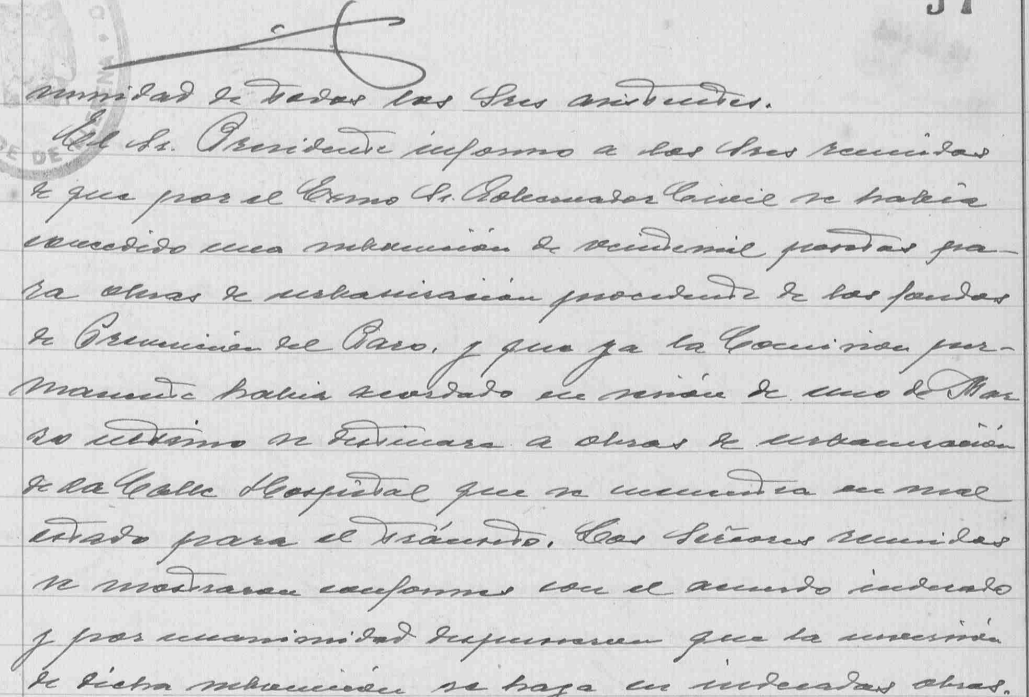 51
nimidad de todos los Sres asistentes.
El Sr. Presidente informo a los Sres reunidos
de que por el Excmo Sr. Gobernador Civil se habia
concedido una subvención de veintemil pesetas pa-
ra obras de urbanización procedente de los fondos
de Prevención del Paro, y que ya la Comision per-
manente habia acordado en sesión de uno de Mar
zo ultimo se destinara a obras de urbanización
de la Calle Hospital que se encuentra en mal
estado para el tránsito. Los Señores reunidos
se mostraron conformes con el acuerdo indicado
y por unanimidad dispusieron que la inversión
de dicha subvención se haga en indicadas obras.